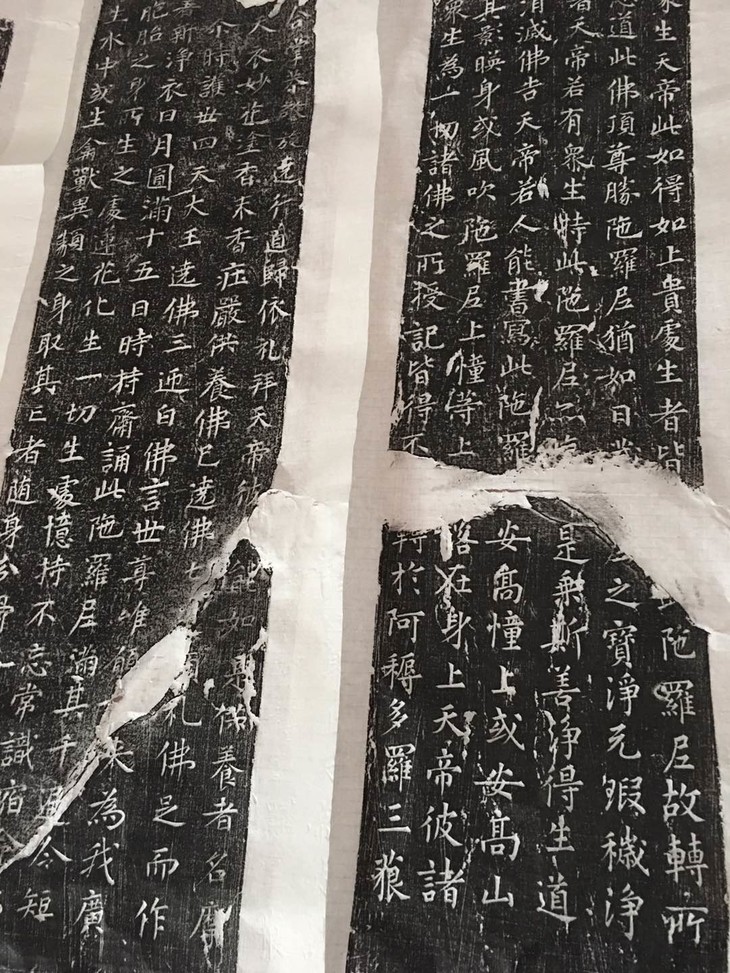 眾生天帝此如得如上貴處生者皆 陁羅尼故轉所
念道此佛頂尊勝陁羅尼猶如日 之寶淨无瑕穢淨
者天帝若有眾生持此陁羅尼 是乘斯善淨得生道
消滅佛告天帝若人能書寫此陁羅 安高憧上或安高山
其影暎身或風吹陁羅尼上憧等上 落在身上天帝彼諸
眾生為一切諸佛之所授記皆得不 轉於阿耨多羅三
遶行道歸依礼拜天帝彼 能如是供養者名
大衣妙花塗香末香庄嚴供養佛已遶佛 礼佛足而作
尒時護世四天大王遶佛三迊白佛言世尊唯願 来為我廣
斯淨衣日月圓滿十五日時持齋誦此陁羅尼滿其千遍令短
胞胎之身所生之處蓮花化生一切生處憶持不忘常識宿
生水中或生禽獸異類之身取其 者随身